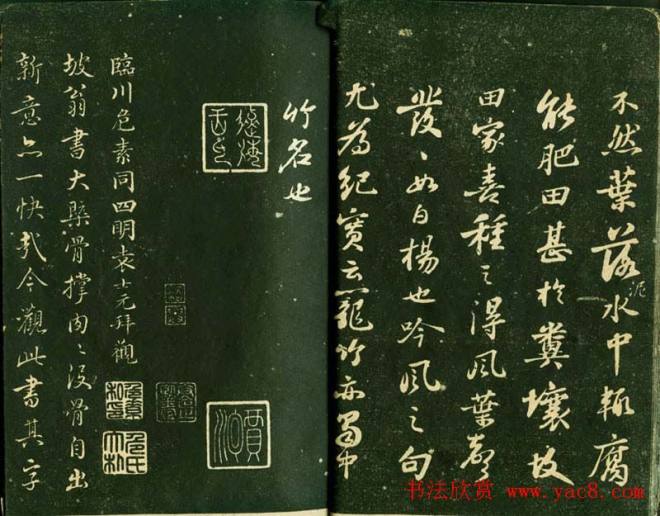 不然葉落泥水中輙腐
能肥田甚於糞壤故
田家喜種之得風葉聲
發〻如白楊也吟風之句
尤為紀實云籠竹亦蜀中
竹名也
臨川危素同四明袁士元拜觀
坡翁書大槩骨撑肉〻沒骨自出
新意亦一快我今觀此書其字
賈似道
危氏
书法欣赏 www.yac8.com